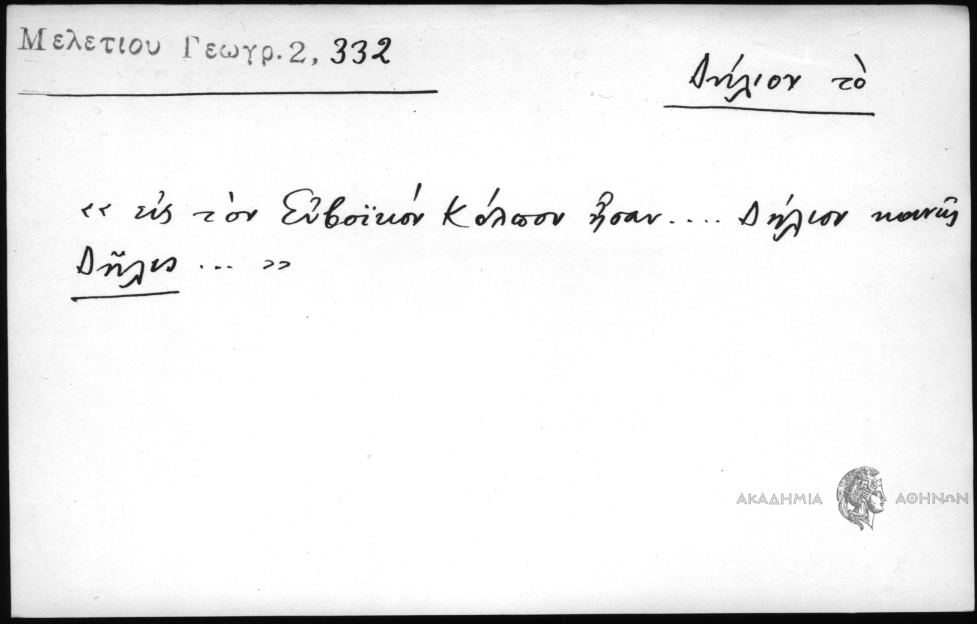 Μελετιου Γεωγρ. 2, 332
Δήλιον τὸ
« εἰς τὸν Εὐβοϊκόν Κόλπον ἦσαν .... Δήλιον κοινῶς
Δῆλις ... »
ΑΚΑΔΗΜΙΑ ΑΘΗΝΩΝ